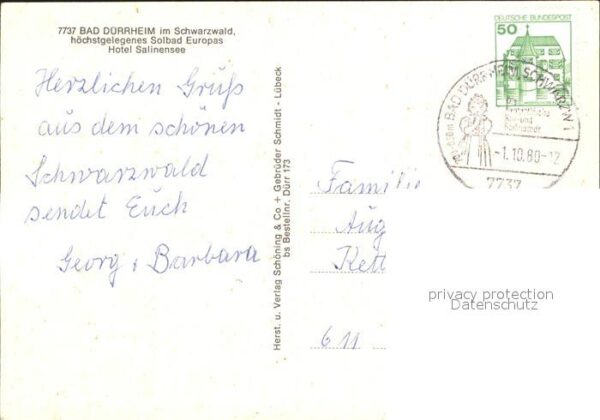 7737 BAD DÜRRHEIM im Schwarzwald,
höchstgelegenes Solbad Europas
Hotel Salinensee
Herzlichen Gruß
aus dem schönen
Schwarzwald
sendet Euch
Georg, Barbara
Herst. u. Verlag Schöning & Co + Gebrüder Schmidt - Lübeck
bs Bestellnr. Dürr 173
DEUTSCHE BUNDESPOST
50
BAD DÜRRHEIM SCHWARZW 1
-1.10.80-12
7737
Famili
Aug
Kett
611
privacy protection
Datenschutz